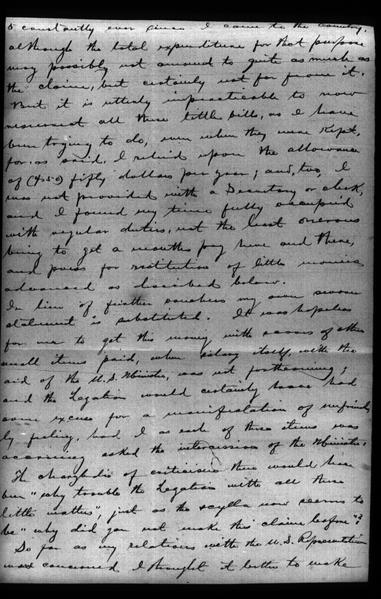 & constantly ever since I came to the country,
although the total expenditure for that purpose
may possibly not amount to quite as much as
the claim, but certainly not far from it.
But it is utterly impracticable to now
resurrect all these little bills, as I have
been trying to do, even when they were kept,
for, as said, I relied upon the allowance
of ($50) fifty dollars per year; and, two, I
was not provided with a Secretary or clerk,
and I found my time fully occupied
with regular duties, not the least onerous
being to get a months pay here and there,
and press for restitution of little monies
advanced as described below.
In lieu of further vouchers my own sworn
statement is substituted. It was hopeless
for me to get this money, with scores of other
small items paid, when salary itself, with the
aid of the U.S. Minister, was not forthcoming;
and the Legation would certainly have had
some excuse for a manifestation of unfriend
ly feeling, had I as each of these items was
accruing asked the intercession of the Minister.
The charybdis of criticism then would have
been "why trouble the Legation with all these
little matters", just as the scylla now seems to
be "why did you not make this claim before"?
So far as my relations with the U.S. Representative
was concerned I thought it better to make